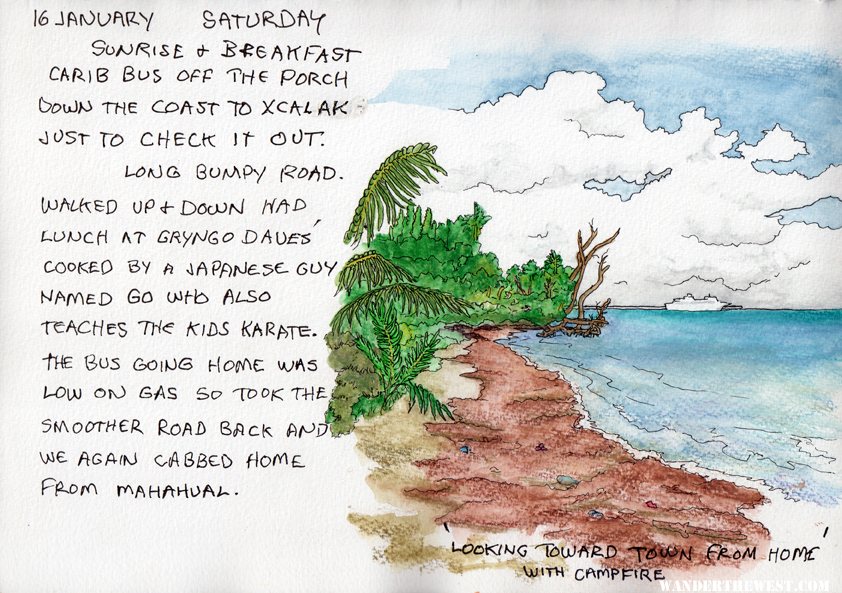 16 JANUARY SATURDAY
SUNRISE + BREAKFAST
CARIB BUS OFF THE PORCH
DOWN THE COAST TO XCALAK
JUST TO CHECK IT OUT.
LONG BUMPY ROAD.
WALKED UP + DOWN HAD
LUNCH AT GRYNGO DAVES'
COOKED BY A JAPANESE GUY
NAMED GO WHO ALSO
TEACHES THE KIDS KARATE.
THE BUS GOING HOME WAS
LOW ON GAS SO TOOK THE
SMOOTHER ROAD BACK AND
WE AGAIN CABBED HOME
FROM MAHAHUAL.
'LOOKING TOWARD TOWN FROM HOME'
WITH CAMPFIRE
WANDERTHEWEST.COM